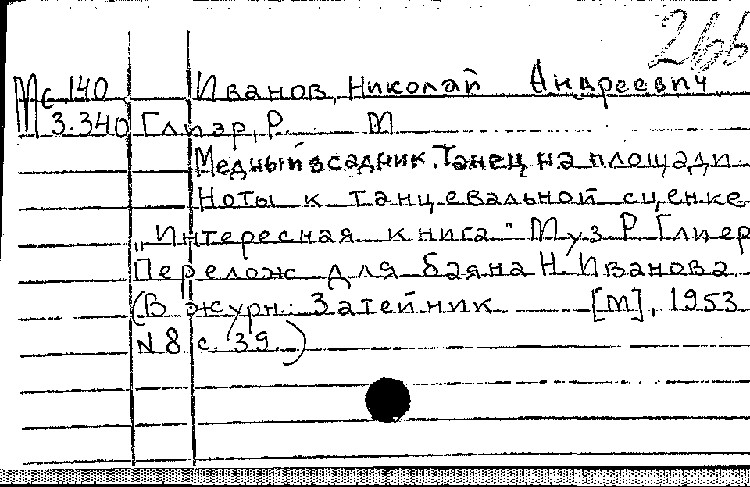 266
Мс 140 Иванов, Николай Андреевич
3.340 Глиэр, Р. М
Медный всадник. Танец на площади
Ноты к танцевальной сценке
„Интересная книга" Муз Р Глиер
Перелож для баяна Н. Иванова
(В журн: Затейник [М], 1953
N 8 с. 39)